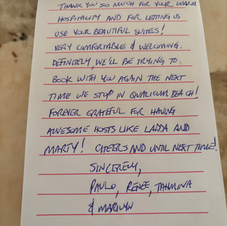 THANK YOU SO MUCH FOR YOUR WARM
HOSPITALITY AND FOR LETTING US
USE YOUR BEAUTIFUL SUITES!
VERY COMFORTABLE & WELCOMING.
DEFINITELY WE'LL BE TRYING TO
BOOK WITH YOU AGAIN THE NEXT
TIME WE STOP IN QUALICUM BEACH!
FOREVER GRATEFUL FOR HAVING
AWESOME HOSTS LIKE LADDA AND
MARTY! CHEERS AND UNTIL NEXT TIME!
SINCERELY,
PAULO, RENEE,
& MARILYN